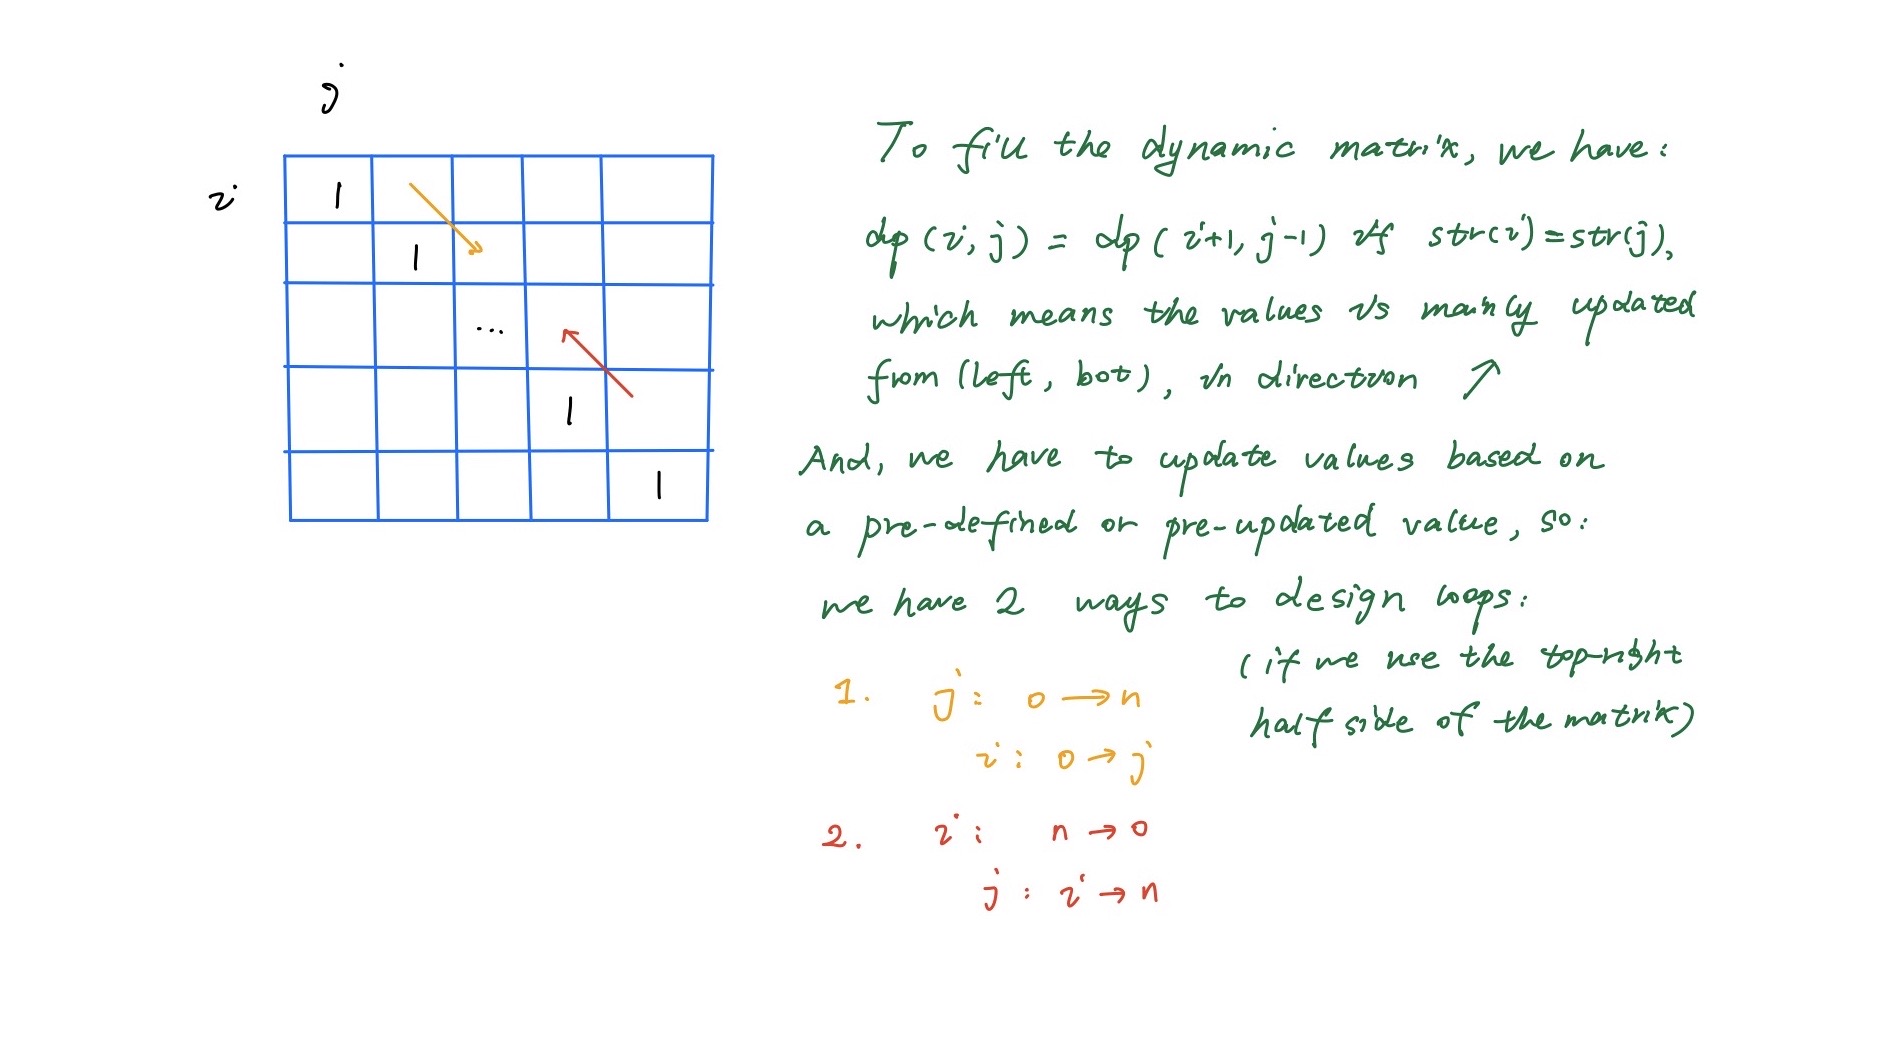 j
i
1
1
...
1
1
To fill the dynamic matrix, we have:
dp(i, j) = dp(i+1, j-1) if str(i)=str(j),
which means the values is mainly updated
from (left, bot), in direction ↗
And, we have to update values based on
a pre-defined or pre-updated value, so:
we have 2 ways to design loops:
(if we use the top-right
half side of the matrix)
1. j: 0 → n
i: 0 → j
2. i: n → 0
j: i → n